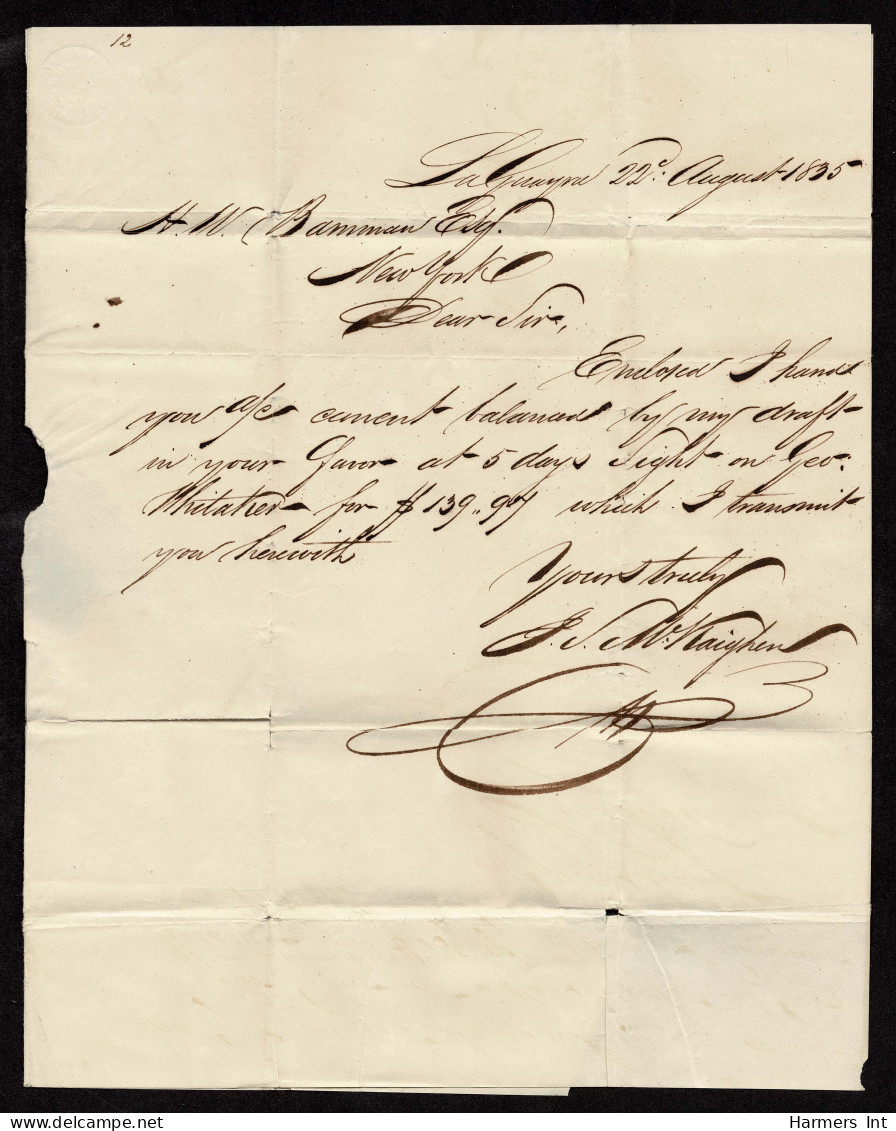 12
La Guayra 22d. August 1835
H. W. Bamman Esqr.
New York
Dear Sir,
Enclosed I hand
you a/c current balanced by my draft
in your favor at 5 days sight on Geo.
Whitaker for $139..97 which I transmit
you herewith
Yours truly
J. S. McKaighen
Harmers Int